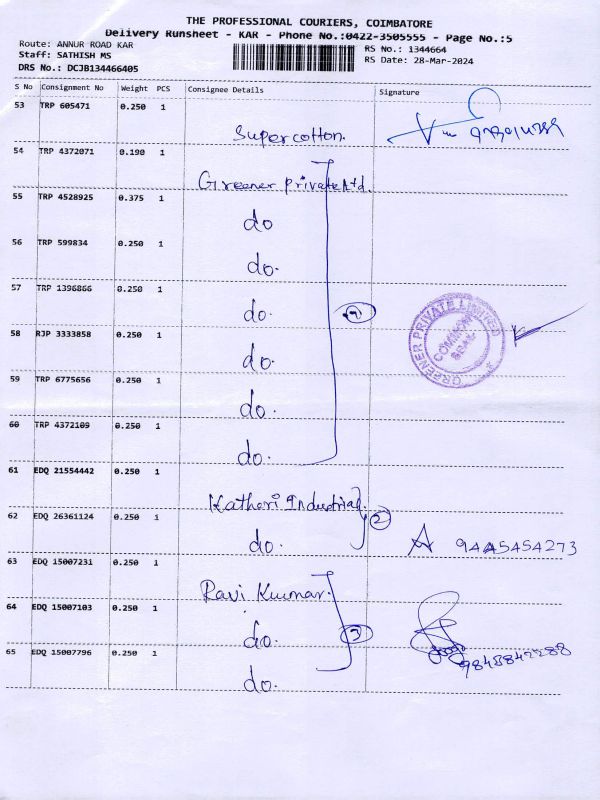 THE PROFESSIONAL COURIERS, COIMBATORE
Delivery Runsheet - KAR - Phone No.:0422-3505555 - Page No.:5
Route: ANNUR ROAD KAR
Staff: SATHISH MS
DRS No.: DCJB134466405
RS No.: 1344664
RS Date: 28-Mar-2024
S No Consignment No Weight PCS Consignee Details Signature
53 TRP 605471 0.250 1
Supercotton.
54 TRP 4372071 0.190 1
Greener Private Ltd.
55 TRP 4528925 0.375 1
do
56 TRP 599834 0.250 1
do.
57 TRP 1396866 0.250 1
do.
GREENER PRIVATE LIMITED
COMMON
SEAL
58 RJP 3333858 0.250 1
do.
59 TRP 6775656 0.250 1
do.
60 TRP 4372109 0.250 1
do.
61 EDQ 21554442 0.250 1
Kathori Industrial.
2
62 EDQ 26361124 0.250 1
do. 9445454273
63 EDQ 15007231 0.250 1
Ravi Kuumar.
64 EDQ 15007103 0.250 1
do. 3
65 EDQ 15007796 0.250 1
do.